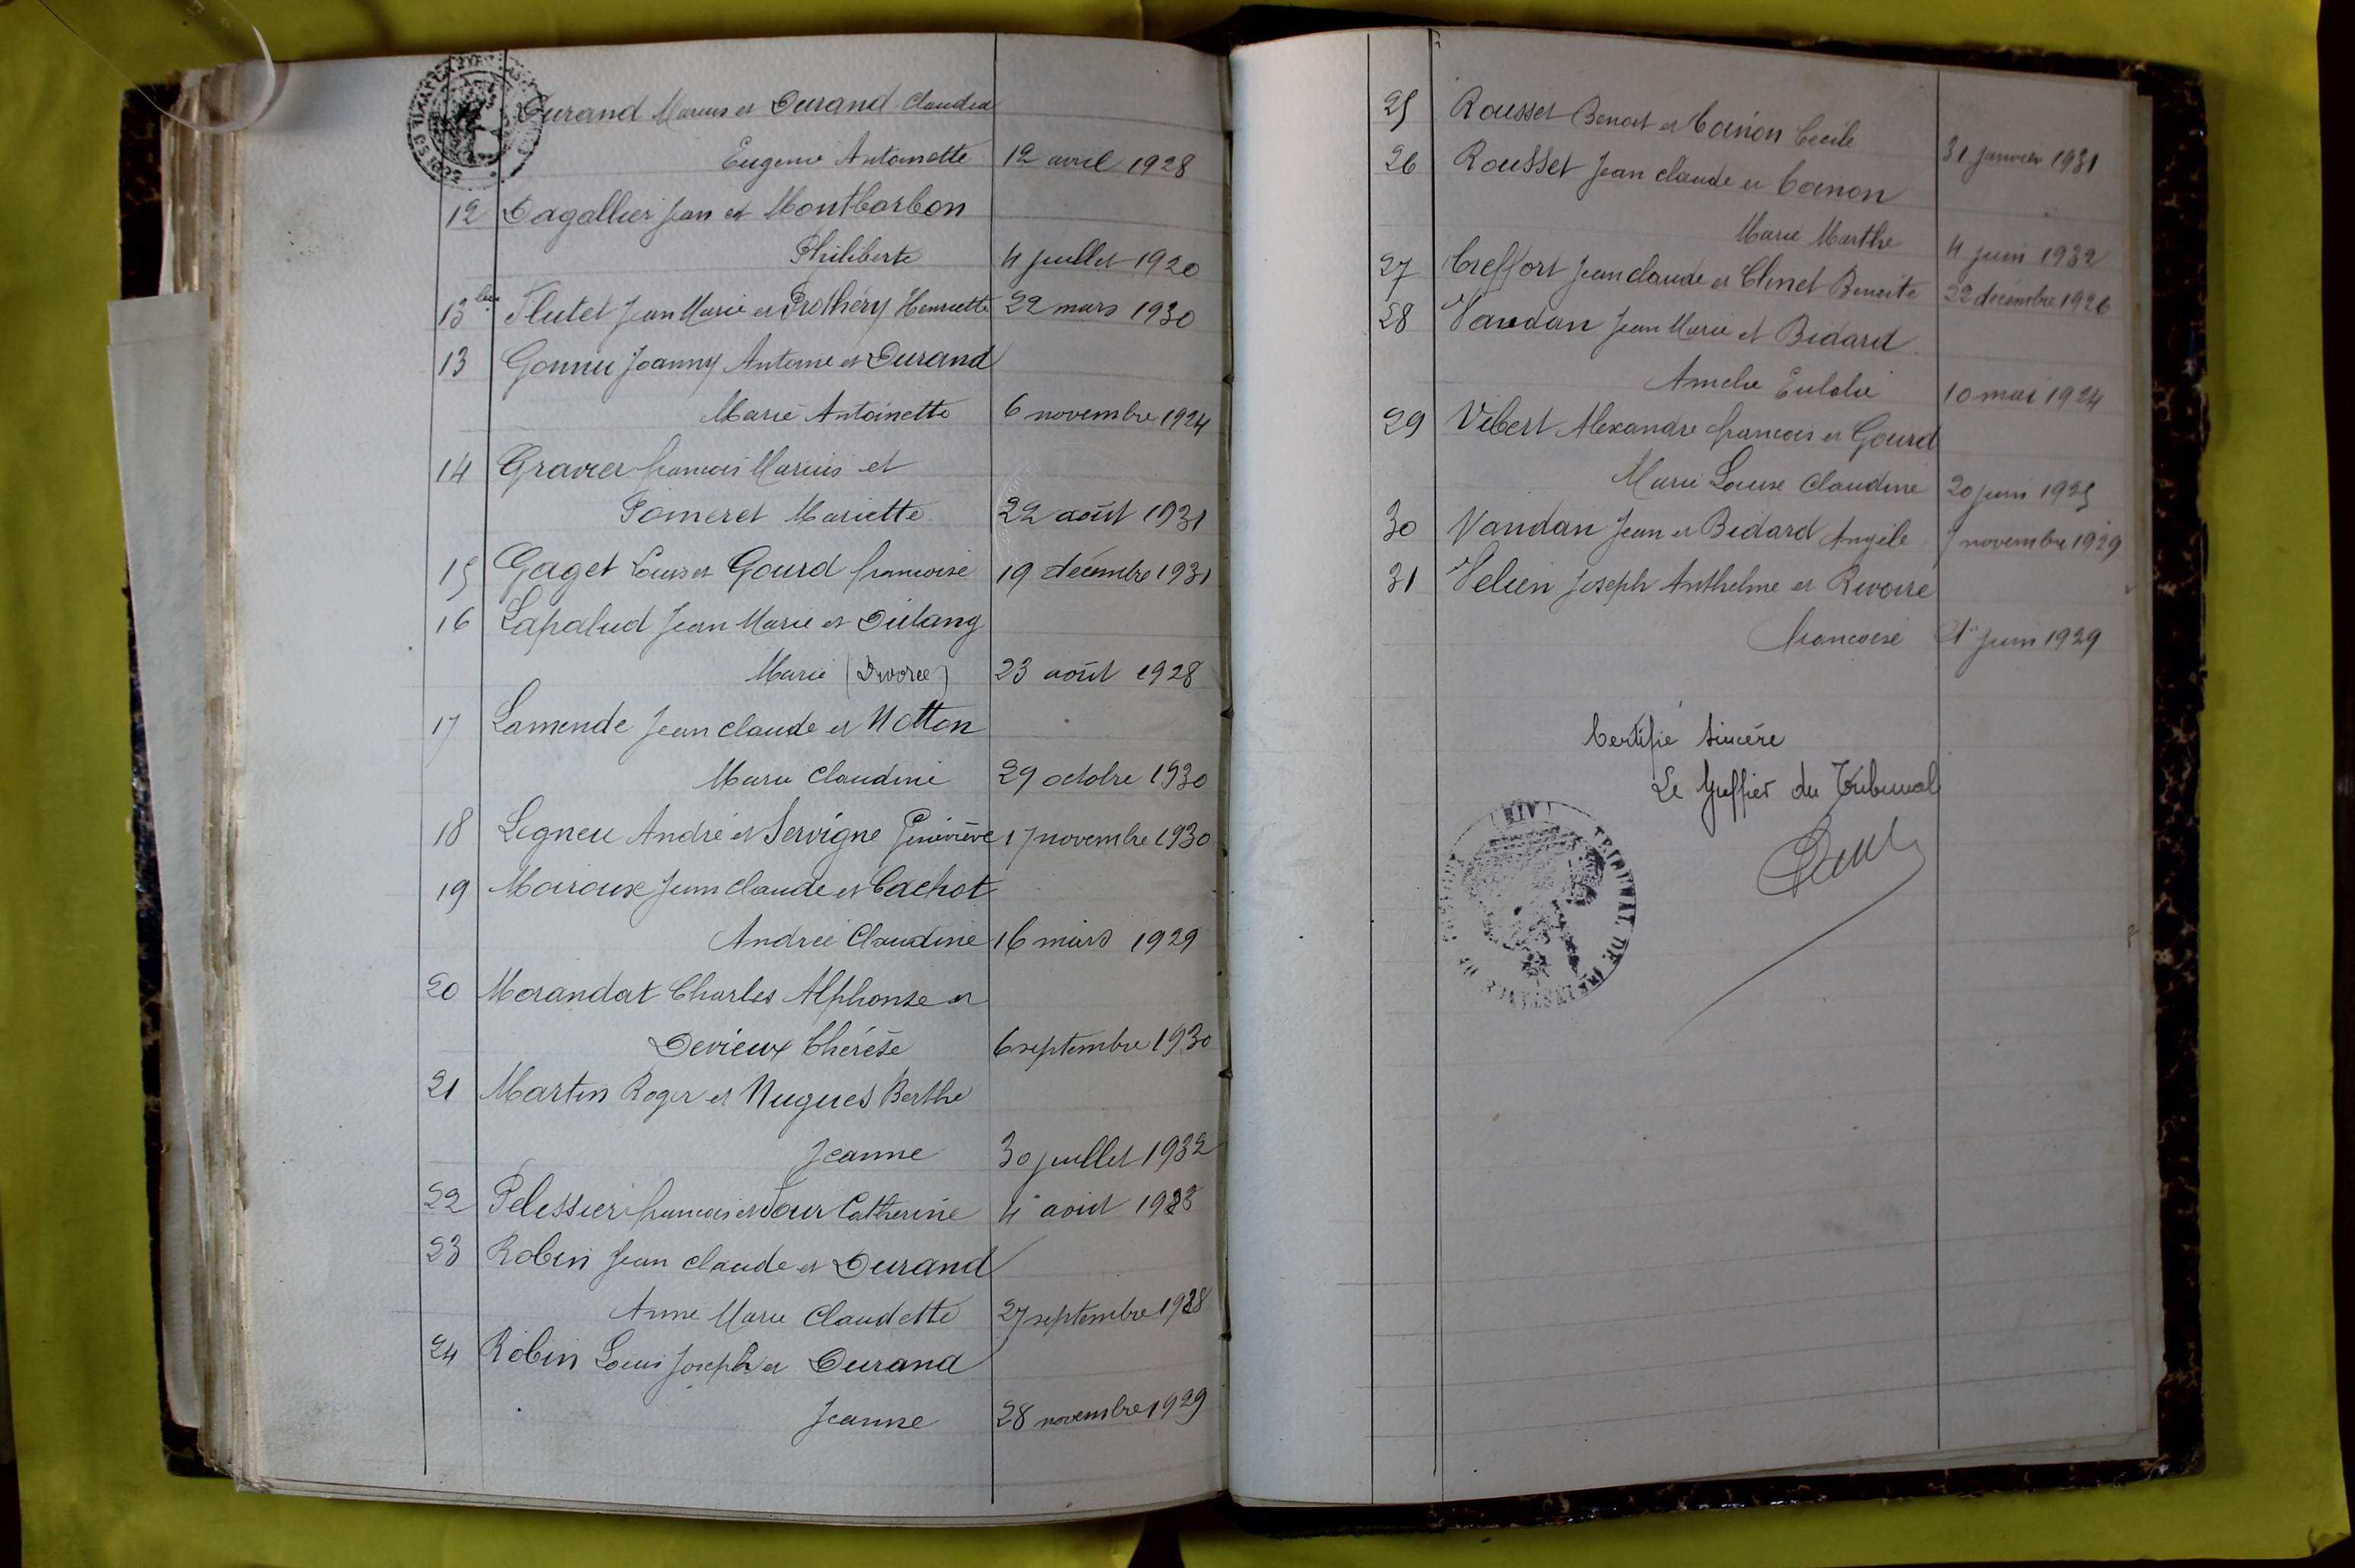 Durand Marius et Durand Claudia
Eugenie Antoinette 12 avril 1928
12 Dagallier Jean et Montbarbon
Philiberte 4 juillet 1920
13 bis Flutet Jean Marie et Prothéry Henriette 22 mars 1930
13 Gonnu Joanny Antoine et Durand
Marie Antoinette 6 novembre 1924
14 Gravier francois Marius et
Pomeret Mariette 22 août 1931
15 Gaget Louis et Gourd francoise 19 decembre 1931
16 Lapalud Jean Marie et Dulang
Marie (Divorce) 23 août 1928
17 Lamende Jean Claude et Notton
Marie Claudine 29 octobre 1930
18 Ligneu André et Servigne Généviève 17 novembre 1930
19 Moiroux Jean Claude et Cachot
Andrée Claudine 16 mars 1929
20 Morandat Charles Alphonse et
Devieux Thérèse 6 septembre 1930
21 Martin Roger et Nugues Berthe
Jeanne 30 juillet 1932
22 Pelissier francois et Jour Catherine 4 août 1923
23 Robin Jean Claude et Durand
Anne Marie Claudette 27 septembre 1928
24 Robin Louis Joseph et Durand
Jeanne 28 novembre 1929
25 Rousset Benoit et Coinon Cecile 31 janvier 1931
26 Rousset Jean Claude et Coinon
Marie Marthe 4 juin 1932
27 Treffort Jean Claude et Clunet Benoite 22 décembre 1926
28 Vandan Jean Marie et Bidard
Amelie Eulalie 10 mai 1924
29 Vibert Alexandre francois et Gourd
Marie Louise Claudine 20 juin 1925
30 Vandan Jean et Bidard Angèle 7 novembre 1929
31 Velien Joseph Anthelme et Rivoire
francoise 1er juin 1929
Certifié Sincère
Le Greffier du Tribunal
TRIBUNAL DE 1RE INSTANCE